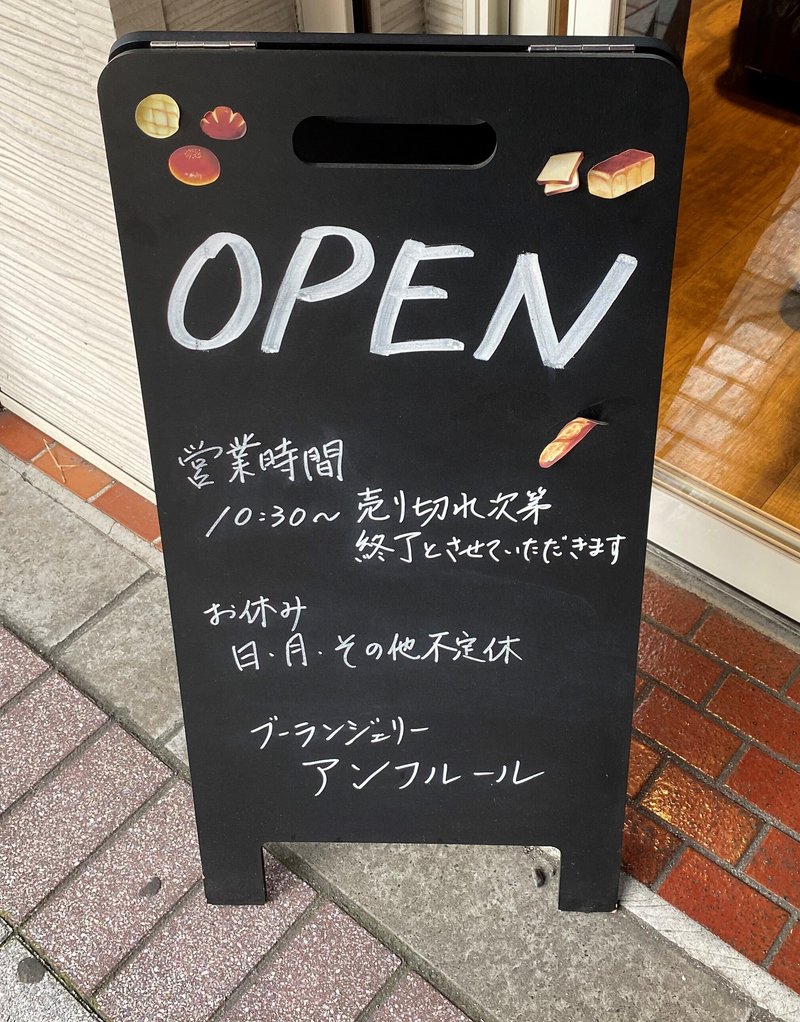 OPEN
営業時間
10:30〜 売り切れ次第
終了とさせていただきます
お休み
日・月・その他不定休
ブーランジェリー
アンフルール